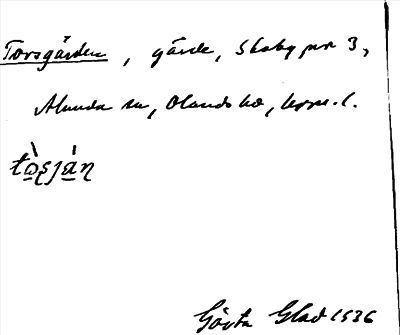 Torsgården, gärde, Skoby nr 3,
Alunda sn, Olands hd, Upps. l.
tòsján
Gösta Glad 1936